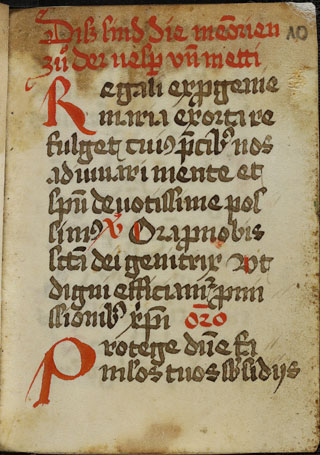 Diß sind die memorien
zů der vesp vnd metti
10
Regali ex ꝓgenie
maria exorta re
fulget cuiꝰ p̄cibꝰ nos
adiuuari mente et
spũ deuotissime pos
simꝰ V Ora p nobis
sc̃ta dei genitrix Vt
digni efficiamʳ ꝓmi
ssionibꝰ xp̃i or̃o
Protege dñe fa
mĩlos tuos sbsidijs